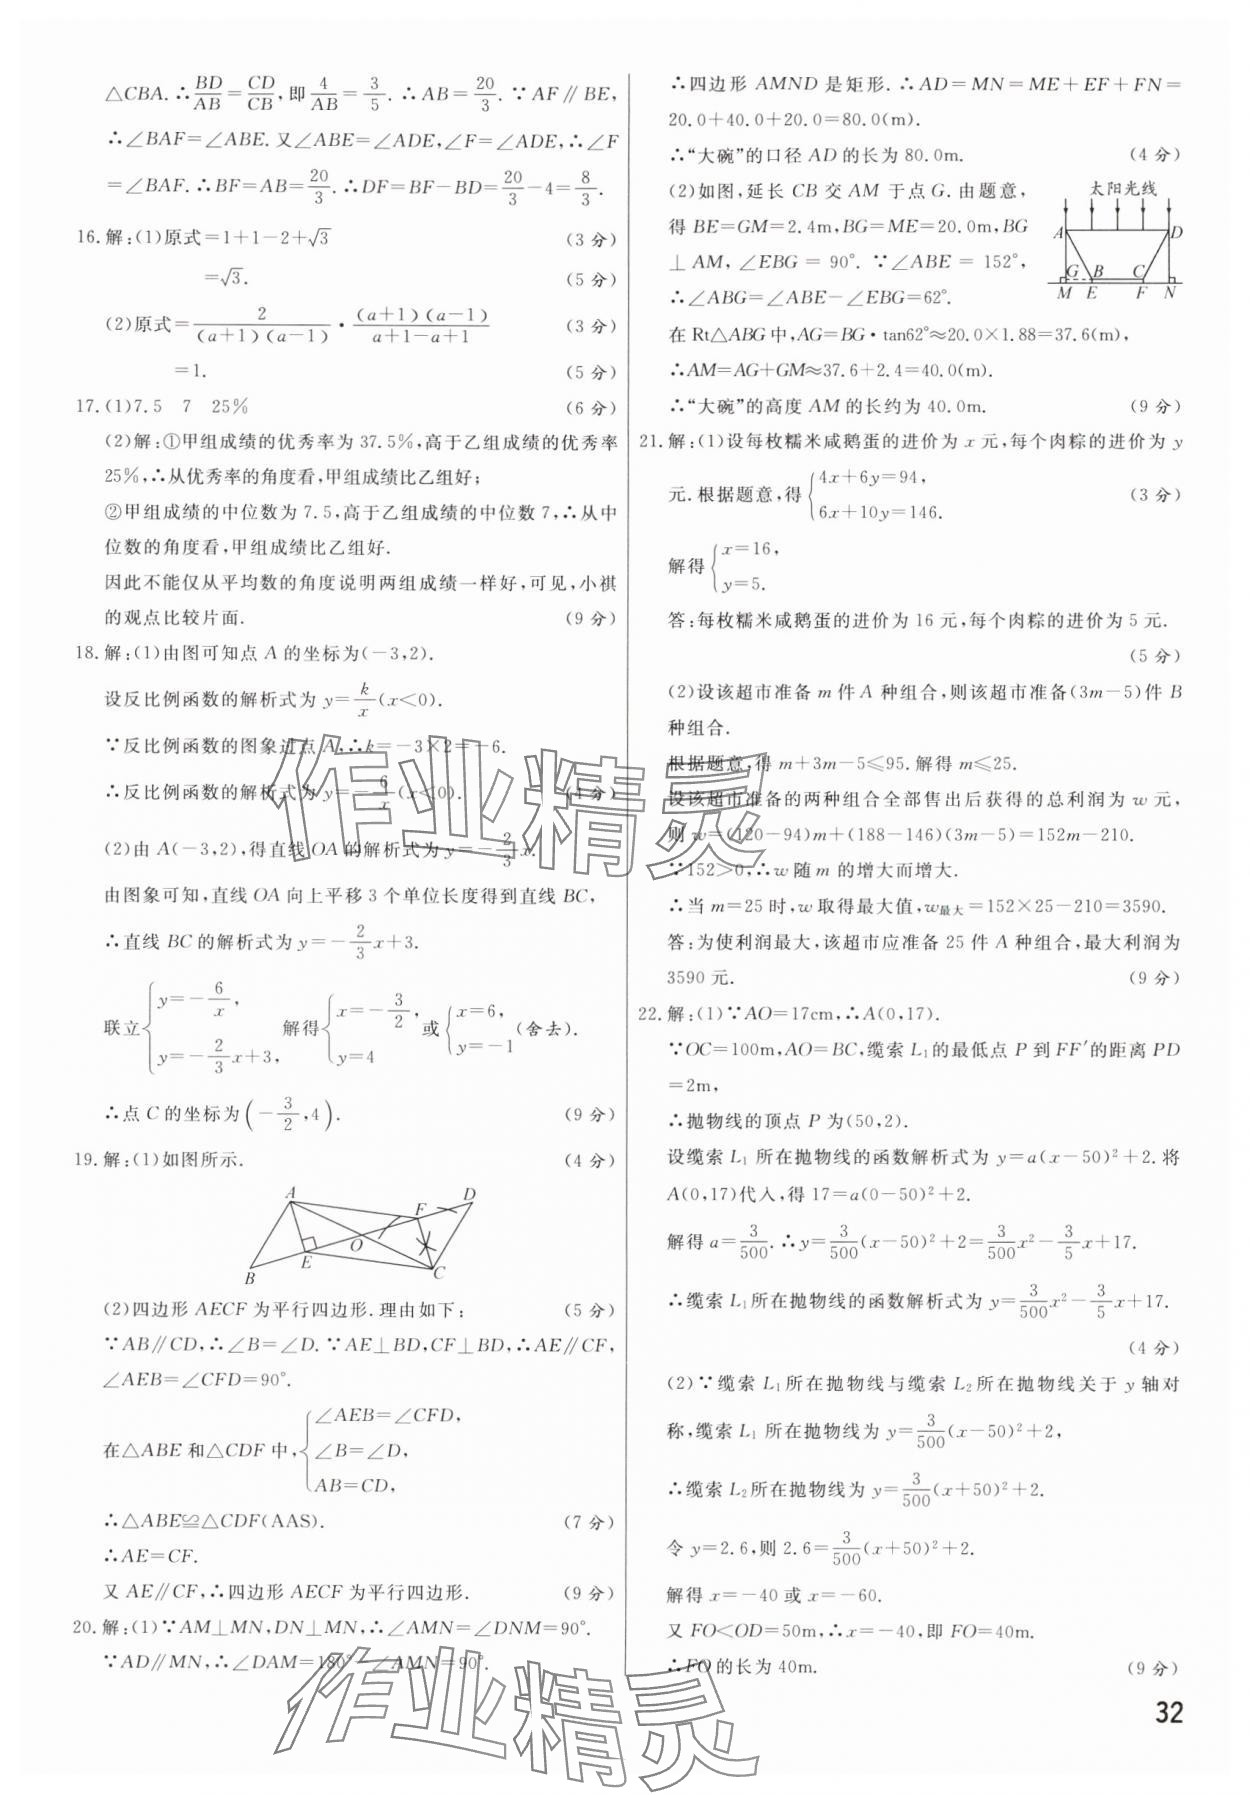 △CBA.∴BD/AB=CD/CB,即4/AB=3/5.∴AB=20/3.∵AF∥BE,
∴∠BAF=∠ABE.又∠ABE=∠ADE,∠F=∠ADE,∴∠F
=∠BAF.∴BF=AB=20/3.∴DF=BF-BD=20/3-4=8/3.
16.解:(1)原式=1+1-2+√3 (3分)
=√3. (5分)
(2)原式=2/((a+1)(a-1))·((a+1)(a-1))/(a+1-a+1) (3分)
=1. (5分)
17.(1)7.5 7 25% (6分)
(2)解:①甲组成绩的优秀率为37.5%,高于乙组成绩的优秀率
25%,∴从优秀率的角度看,甲组成绩比乙组好;
②甲组成绩的中位数为7.5,高于乙组成绩的中位数7,∴从中
位数的角度看,甲组成绩比乙组好.
因此不能仅从平均数的角度说明两组成绩一样好,可见,小祺
的观点比较片面. (9分)
18.解:(1)由图可知点A的坐标为(-3,2).
设反比例函数的解析式为y=k/x(x<0).
∵反比例函数的图象过点A,∴k=-3×2=-6.
∴反比例函数的解析式为y=-6/x(x<0). (4分)
(2)由A(-3,2),得直线OA的解析式为y=-2/3x.
由图象可知,直线OA向上平移3个单位长度得到直线BC,
∴直线BC的解析式为y=-2/3x+3.
联立{y=-6/x, y=-2/3x+3, 解得{x=-3/2, y=4 或{x=6, y=-1 (舍去).
∴点C的坐标为(-3/2,4). (9分)
19.解:(1)如图所示. (4分)
A
D
F
O
B
E
C
(2)四边形AECF为平行四边形.理由如下: (5分)
∵AB∥CD,∴∠B=∠D.∵AE⊥BD,CF⊥BD,∴AE∥CF,
∠AEB=∠CFD=90°.
在△ABE和△CDF中,{∠AEB=∠CFD, ∠B=∠D, AB=CD,
∴△ABE≌△CDF(AAS). (7分)
∴AE=CF.
又AE∥CF,∴四边形AECF为平行四边形. (9分)
20.解:(1)∵AM⊥MN,DN⊥MN,∴∠AMN=∠DNM=90°.
∵AD∥MN,∴∠DAM=180°-∠AMN=90°.
∴四边形AMND是矩形.∴AD=MN=ME+EF+FN=
20.0+40.0+20.0=80.0(m).
∴“大碗”的口径AD的长为80.0m. (4分)
(2)如图,延长CB交AM于点G.由题意,
得BE=GM=2.4m,BG=ME=20.0m,BG
⊥AM,∠EBG=90°.∵∠ABE=152°,
∴∠ABG=∠ABE-∠EBG=62°.
太阳光线
A D
G B C
M E F N
在Rt△ABG中,AG=BG·tan62°≈20.0×1.88=37.6(m),
∴AM=AG+GM≈37.6+2.4=40.0(m).
∴“大碗”的高度AM的长约为40.0m. (9分)
21.解:(1)设每枚糯米咸鹅蛋的进价为x元,每个肉粽的进价为y
元.根据题意,得{4x+6y=94, 6x+10y=146. (3分)
解得{x=16, y=5.
答:每枚糯米咸鹅蛋的进价为16元,每个肉粽的进价为5元.
(5分)
(2)设该超市准备m件A种组合,则该超市准备(3m-5)件B
种组合.
根据题意,得m+3m-5≤95.解得m≤25.
设该超市准备的两种组合全部售出后获得的总利润为w元,
则w=(120-94)m+(188-146)(3m-5)=152m-210.
∵152>0,∴w随m的增大而增大.
∴当m=25时,w取得最大值,w最大=152×25-210=3590.
答:为使利润最大,该超市应准备25件A种组合,最大利润为
3590元. (9分)
22.解:(1)∵AO=17cm,∴A(0,17).
∵OC=100m,AO=BC,缆索L₁的最低点P到FF′的距离PD
=2m,
∴抛物线的顶点P为(50,2).
设缆索L₁所在抛物线的函数解析式为y=a(x-50)²+2.将
A(0,17)代入,得17=a(0-50)²+2.
解得a=3/500.∴y=3/500(x-50)²+2=3/500x²-3/5x+17.
∴缆索L₁所在抛物线的函数解析式为y=3/500x²-3/5x+17.
(4分)
(2)∵缆索L₁所在抛物线与缆索L₂所在抛物线关于y轴对
称,缆索L₁所在抛物线为y=3/500(x-50)²+2,
∴缆索L₂所在抛物线为y=3/500(x+50)²+2.
令y=2.6,则2.6=3/500(x+50)²+2.
解得x=-40或x=-60.
又FO<OD=50m,∴x=-40,即FO=40m.
∴FO的长为40m. (9分)
32
作业精灵
作业精灵